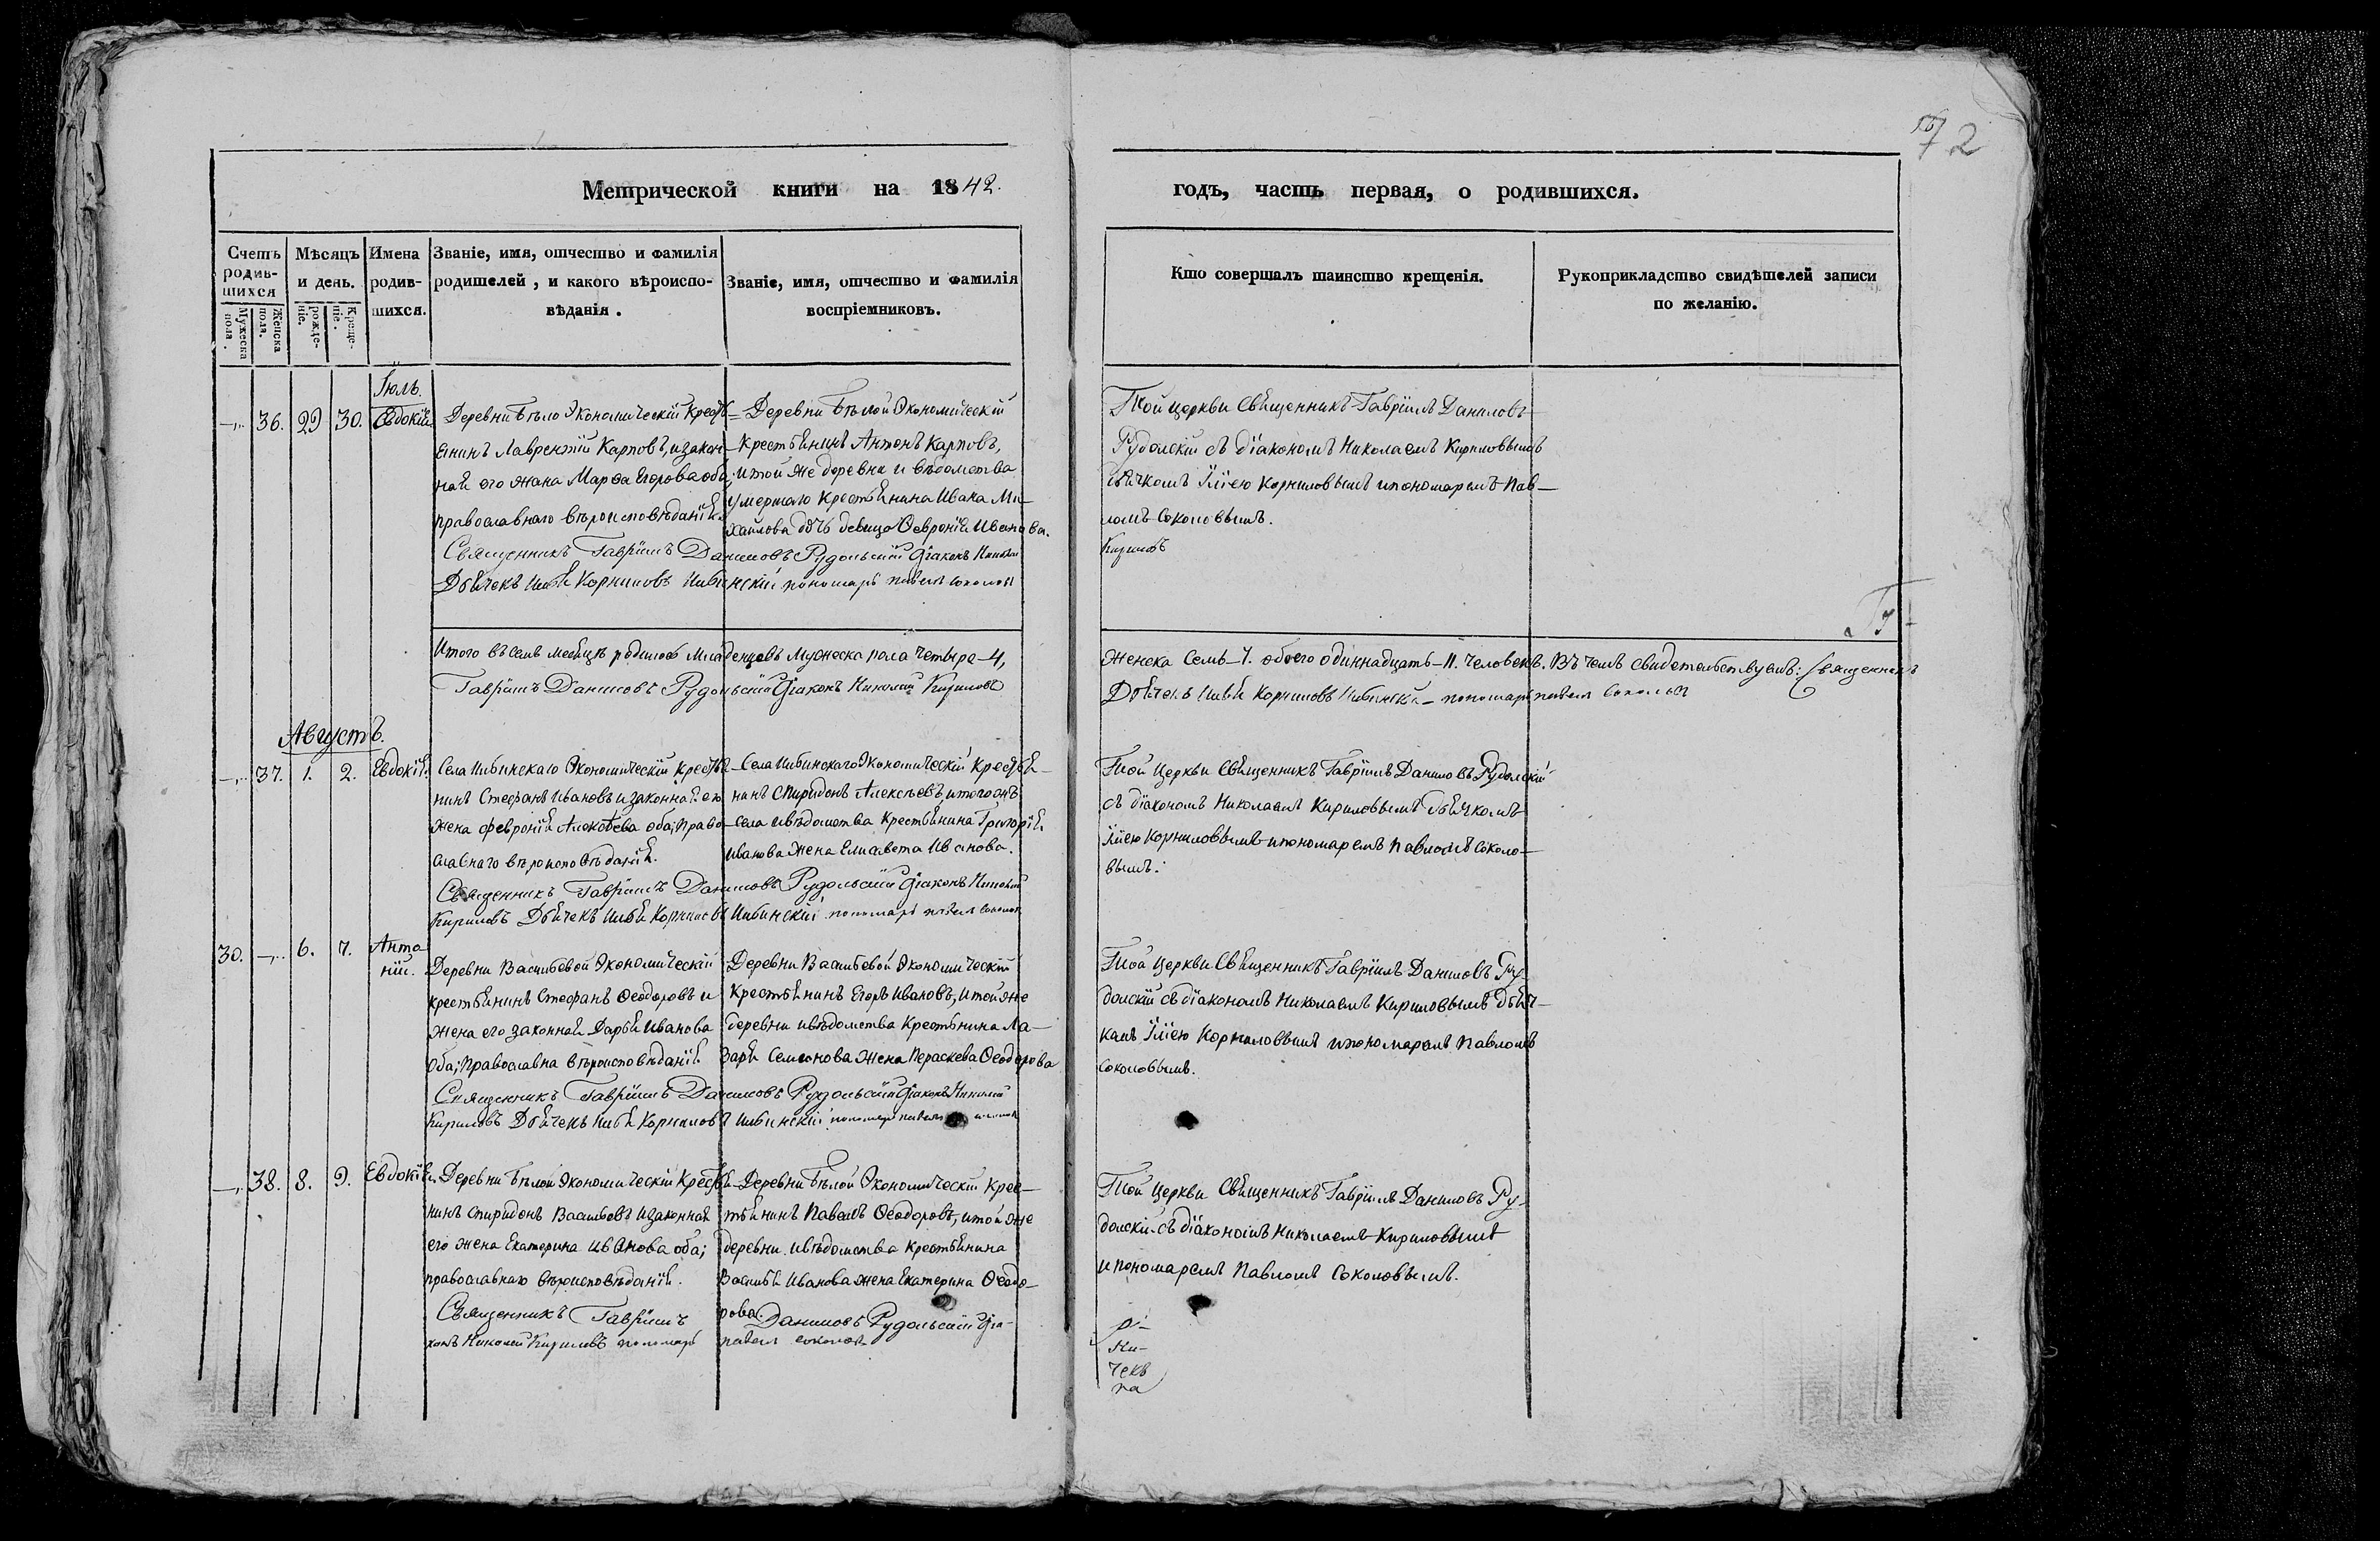 72
Метрической книги на 1842. годъ, часть первая, о родившихся.
Счетъ родившихся
Мужеска пола.
Женска пола.
Мѣсяцъ и день.
рождение.
Крещение.
Имена родившихся.
Званіе, имя, отчество и фамилія
родителей, и какого вѣроиспо-
вѣданія.
Званіе, имя, отчество и фамилія
воспріемниковъ.
Кто совершалъ таинство крещенія.
Рукоприкладство свидѣтелей записи
по желанію.
Іюль.
36. 29 30. Евдокія
Деревни Бѣло Экономическій крестья-
янинъ Лаврентій Карповъ, и закон-
ная его жана Марѳа Егорова оба;
православнаго вѣроисповѣданія.
Деревни Бѣлой Экономическій
крестьянинъ Антонъ Карповъ,
и той же деревни и вѣдомства
умершаго крестьянина Ивана Ми-
хайлова дочь девица Ѳевронія Иванова.
Священникъ Гавріилъ Даниловъ Рудольскій Діаконъ Николай
Дьячекъ Илья Корниловъ пономарь Павелъ Соколовъ
Той церкви Священникъ Гавріилъ Даниловъ
Рудолскій съ діакономъ Николаемъ Кириловымъ
дьячкомъ Иліею Корниловымъ и пономаремъ Пав-
ломъ Соколовымъ.
Кириловъ
Ру-
Итого въ семъ месяцѣ родилось младенцовъ мужеска пола четыре-4,
женска семь-7. обоего одиннадцать-11. человекъ. Въ чемъ свидетельствуемъ: Священникъ
Гавріилъ Даниловъ Рудольскій Діаконъ Николай Кириловъ
Дьячекъ Илья Корниловъ пономарь Павелъ Соколовъ
Августъ.
37. 1. 2. Евдокія.
Села Экономическій крестья-
нинъ Стефанъ Ивановъ и законная его
жена Февронія Алексѣева оба; право-
славнаго вѣроисповѣданія.
Села Экономическій крестья-
нинъ Спиридонъ Алексѣевъ, и тогожъ
села и вѣдомства крестьянина Григорія
Иванова жена Елисавета Иванова.
Священникъ Гавріилъ Даниловъ Рудольскій Діаконъ Николай
Кириловъ Дьячекъ Илья Корниловъ пономарь Павелъ Соколовъ
Той церкви Священникъ Гавріилъ Даниловъ Рудолскій
съ діакономъ Николаемъ Кириловымъ дьячкомъ
Иліею Корниловымъ и пономаремъ Павломъ Соколо-
вымъ.
30. 6. 7. Анто-
ній.
Деревни Васильевой Экономическій
крестьянинъ Стефанъ Ѳеодоровъ и
жена его законная Дарья Иванова
оба; православна вѣроисповѣданія
Деревни Васильевой Экономическій
крестьянинъ Егоръ Ивановъ, и той же
деревни и вѣдомства крестьянина Ла-
заря Семенова жена Параскева Ѳеодорова
Священникъ Гавріилъ Даниловъ Рудольскій Діаконъ Николай
Кириловъ Дьячекъ Илья Корниловъ пономарь Павелъ
Той церкви Священникъ Гавріилъ Даниловъ Ру-
долскій съ діакономъ Николаемъ Кириловымъ дьяч-
комъ Иліею Корниловымъ и пономаремъ Павломъ
Соколовымъ.
38. 8. 9. Евдокія.
Деревни Бѣлой Экономическій крестья-
нинъ Спиридонъ Васильевъ и законная
его жена Екатерина Иванова оба;
православнаго вѣроисповѣданія.
Деревни Бѣлой Экономическій крес-
тьянинъ Павелъ Ѳеодоровъ, и той же
деревни и вѣдомства крестьянина
Василья Иванова жена Екатерина Ѳеодо-
рова.
Священникъ Гавріилъ Даниловъ Рудольскій Діа-
конъ Николай Кириловъ пономарь Павелъ Соколовъ
Той церкви Священникъ Гавріилъ Даниловъ Ру-
долскій съ діакономъ Николаемъ Кириловымъ
и пономаремъ Павломъ Соколовымъ.